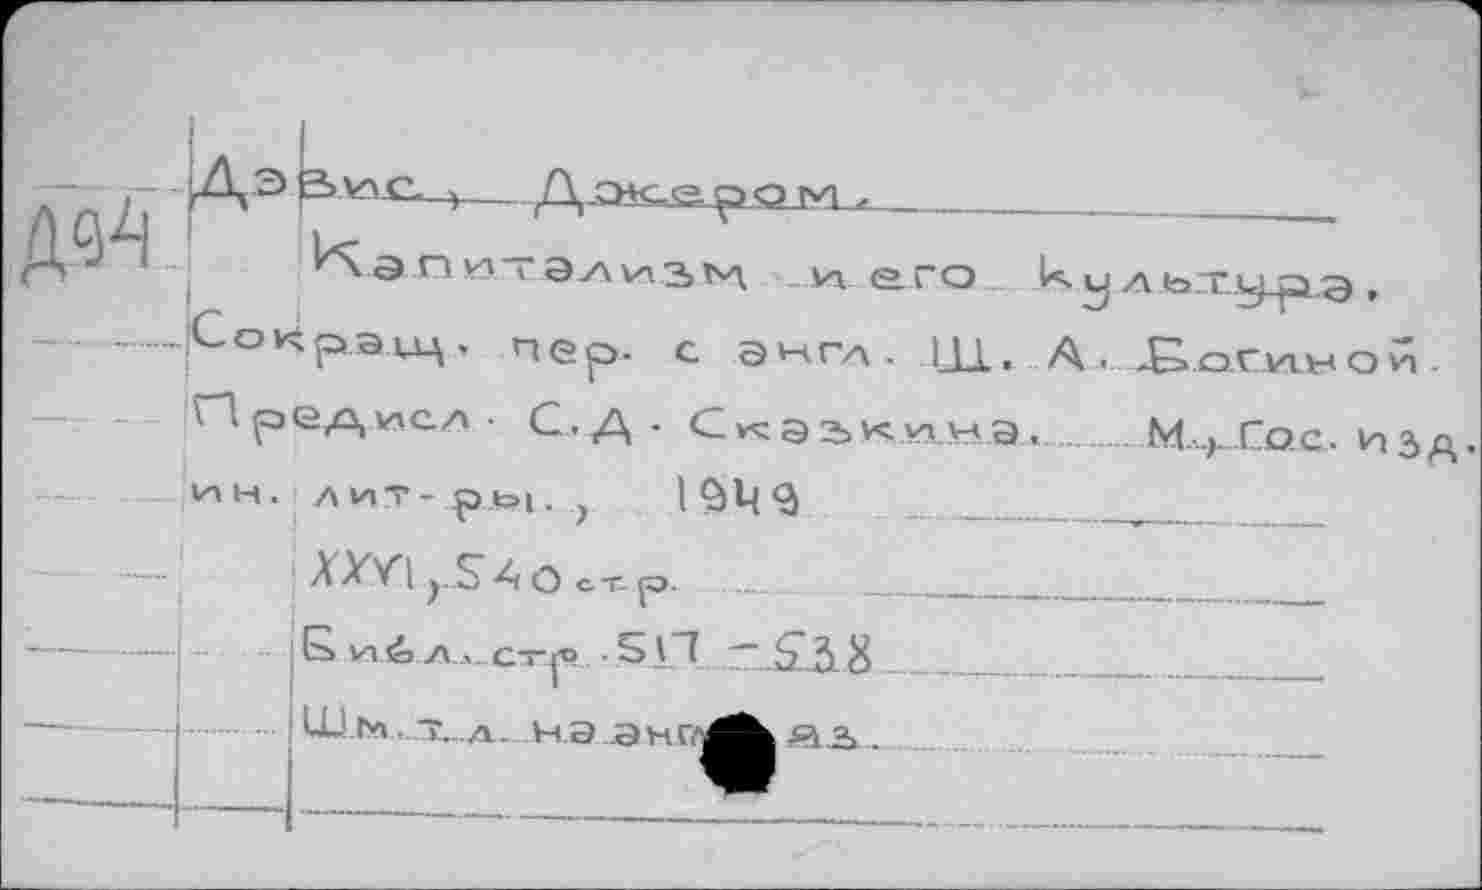 Д94
Дэвис, Джером.
Капитализм и его культура.
Сокращ. пер. с англ. Ш. А. Богиной.
Предисл. С. Д. Сказкина. М., Гос. изд.
ин. лит-ры., 1949
XXVI, 540 стр.
Библ. стр. 517 - 538
Шм. т. л. на англ яз.